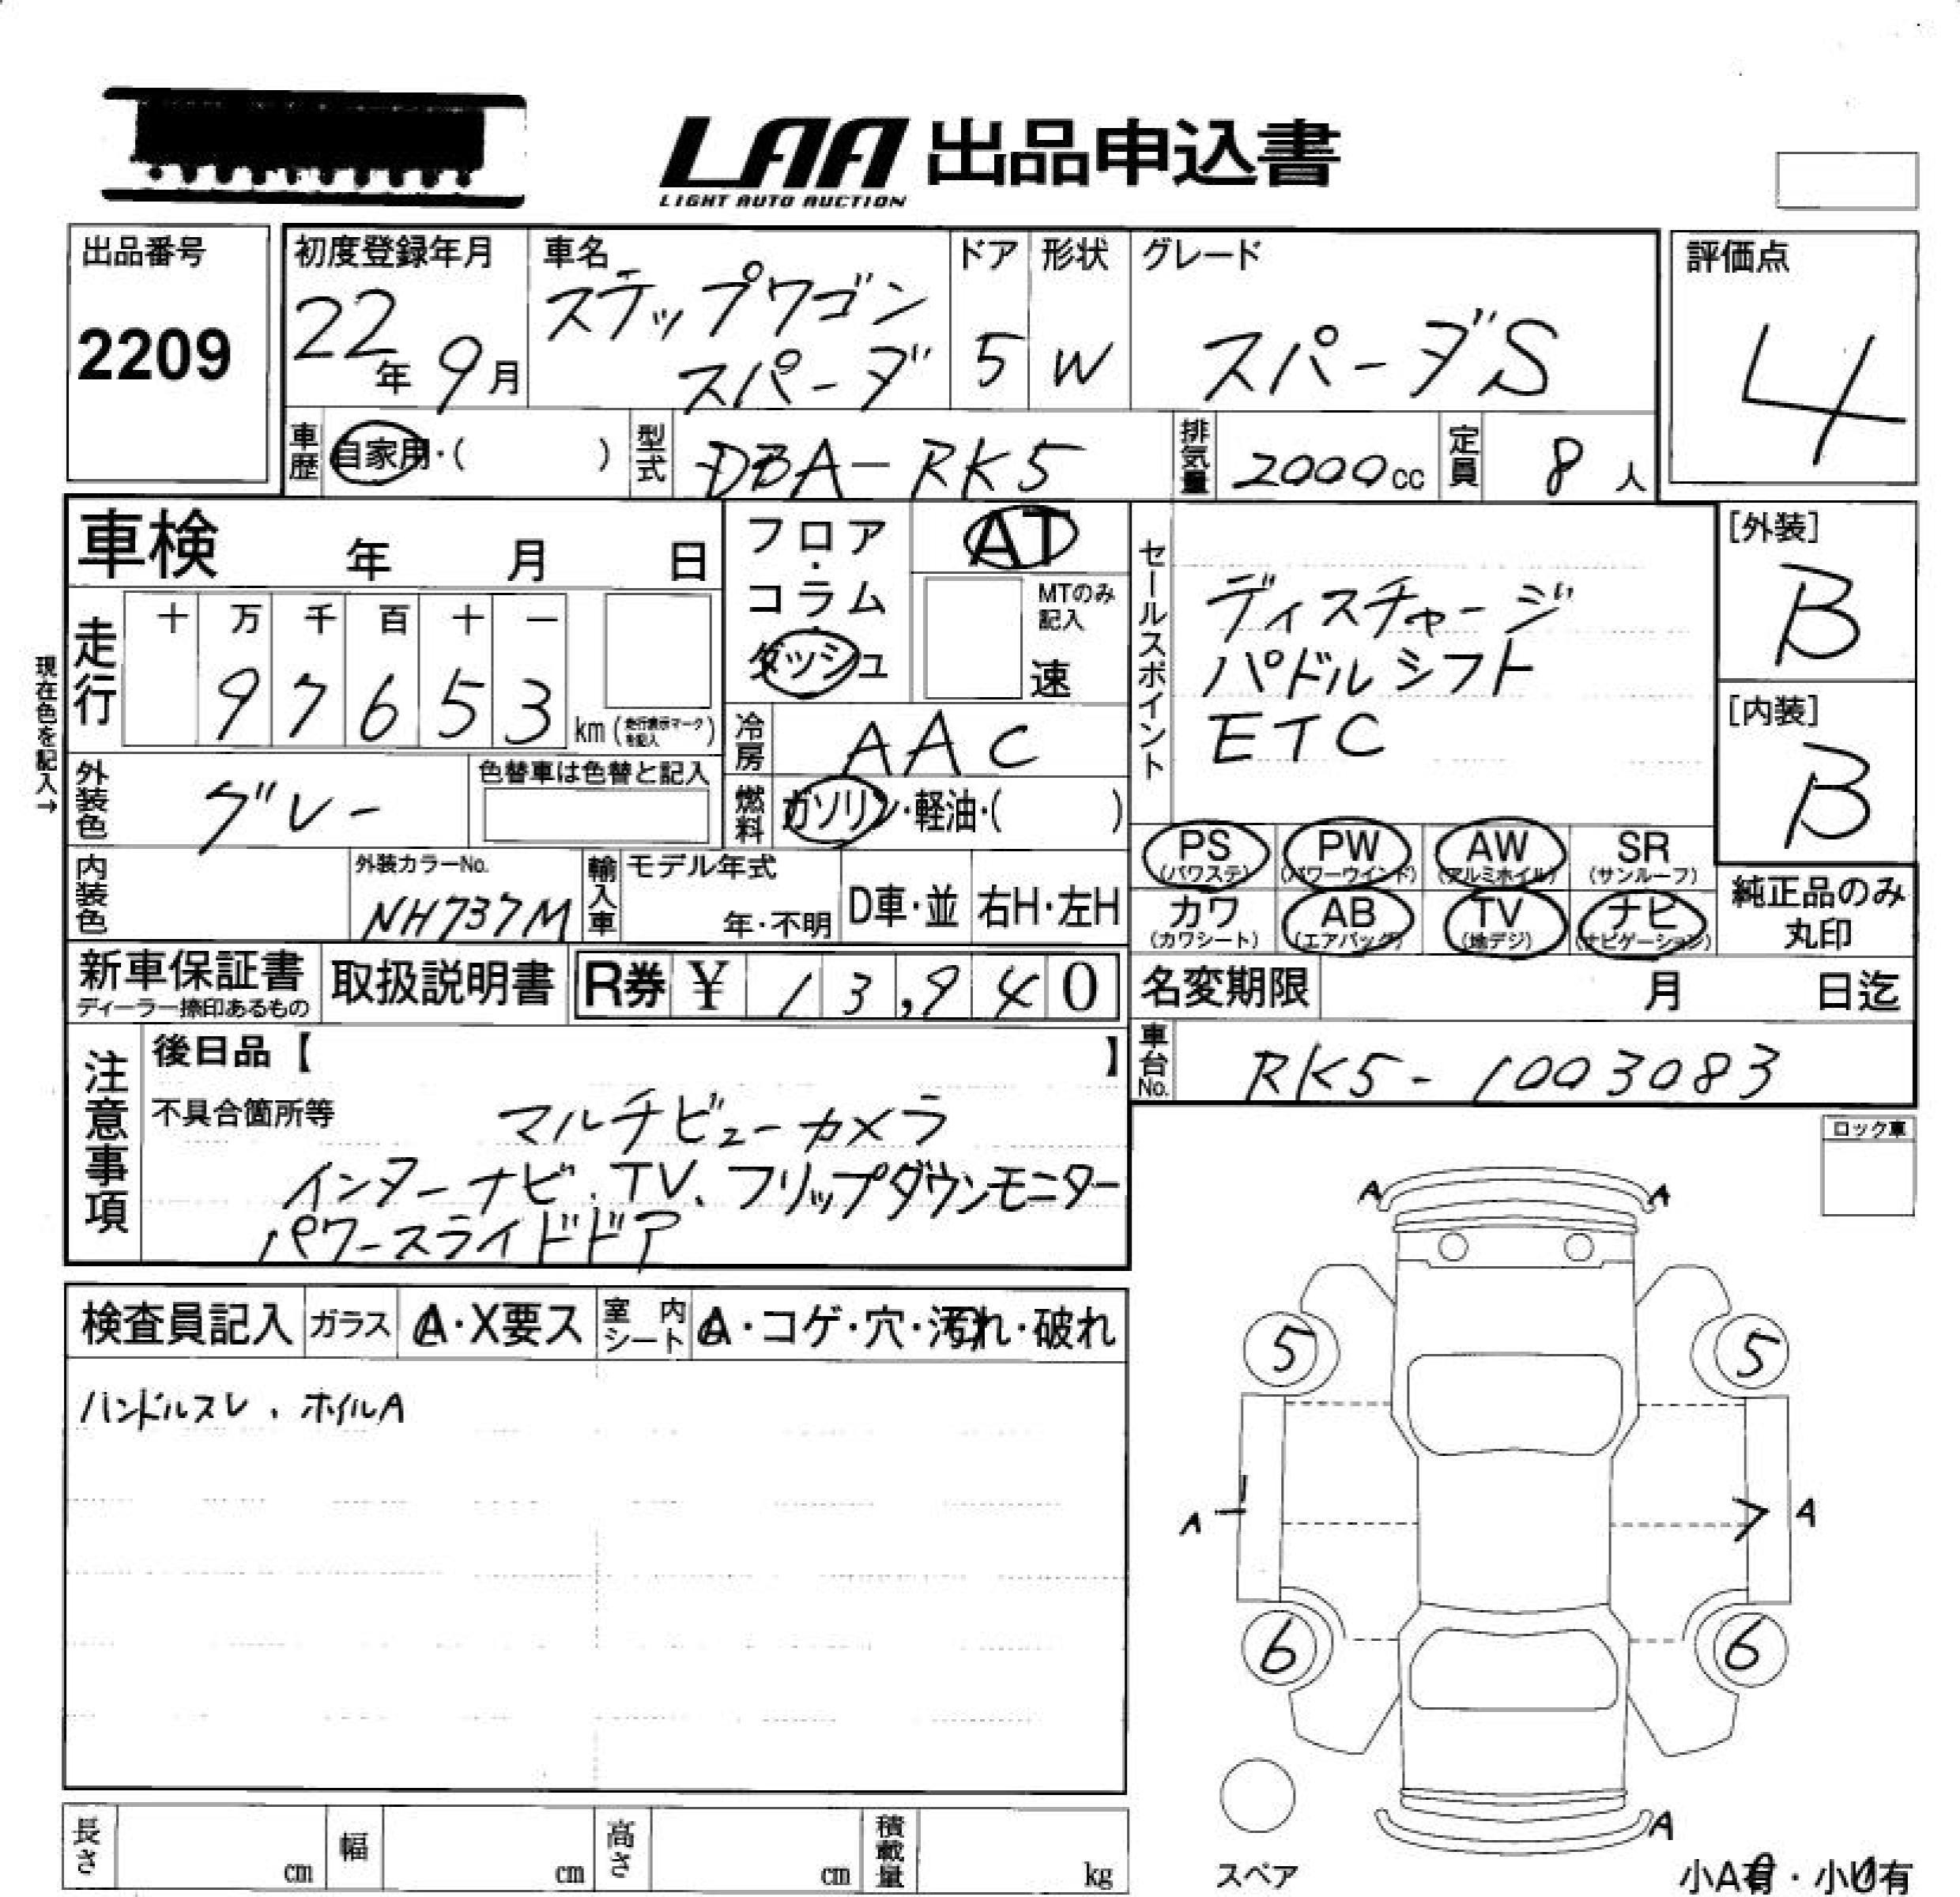 LAA 出品申込書
LIGHT AUTO AUCTION
出品番号
2209
初度登録年月
22年 9月
車名
ステップワゴン
スパーダ
ドア
5
形状
W
グレード
スパーダS
評価点
4
車歴
自家用・( )
型式
DBA-RK5
排気量
2000cc
定員
8人
車検 年 月 日
現在色を記入→
走行
十 万 千 百 十 一
9 7 6 5 3 km (走行表示マークを記入)
フロア・コラム・ダッシュ
AT
MTのみ記入
速
冷房
AAC
燃料
ガソリン・軽油・( )
外装色
グレー
色替車は色替と記入
内装色
外装カラーNo.
NH737M
輸入車
モデル年式
年・不明
D車・並
右H・左H
セールスポイント
ディスチャージ
パドルシフト
ETC
[外装]
B
[内装]
B
PS
(パワステ)
PW
(パワーウインド)
AW
(アルミホイル)
SR
(サンルーフ)
カワ
(カワシート)
AB
(エアバッグ)
TV
(地デジ)
ナビ
(ナビゲーション)
純正品のみ
丸印
新車保証書
ディーラー捺印あるもの
取扱説明書
R券 ¥ 13,940
名変期限 月 日迄
車台No.
RK5-1003083
注意事項
後日品【 】
不具合箇所等
マルチビューカメラ
インターナビ、TV、フリップダウンモニター
パワースライドドア
ロック車
検査員記入
ガラス
A・X要ス
室内シート
A・コゲ・穴・汚れ・破れ
ハンドルスレ、ホイルA
A A
5 5
A A
6 6
A
スペア
小A有・小U有
長さ cm
幅 cm
高さ cm
積載量 kg